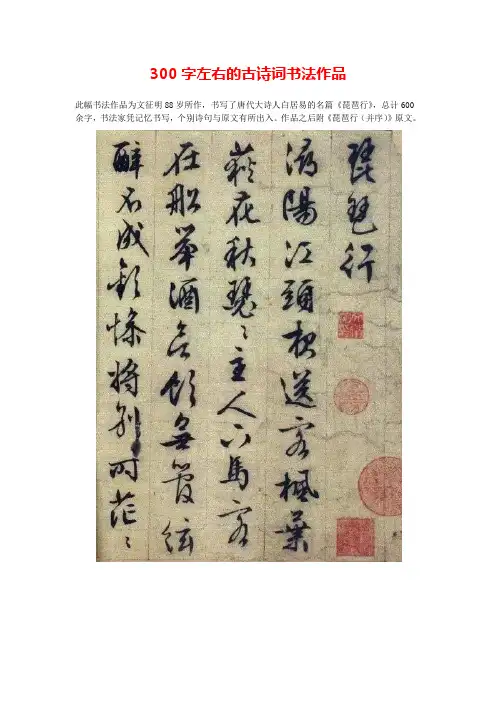 300字左右的古诗词书法作品
此幅书法作品为文征明88岁所作，书写了唐代大诗人白居易的名篇《琵琶行》，总计600
余字，书法家凭记忆书写，个别诗句与原文有所出入。作品之后附《琵琶行（并序）》原文。
琵琶行
潯陽江頭夜送客楓葉
荻花秋瑟〻主人下馬客
在船舉酒欲飲無管弦
醉不成歡慘將別別時茫〻